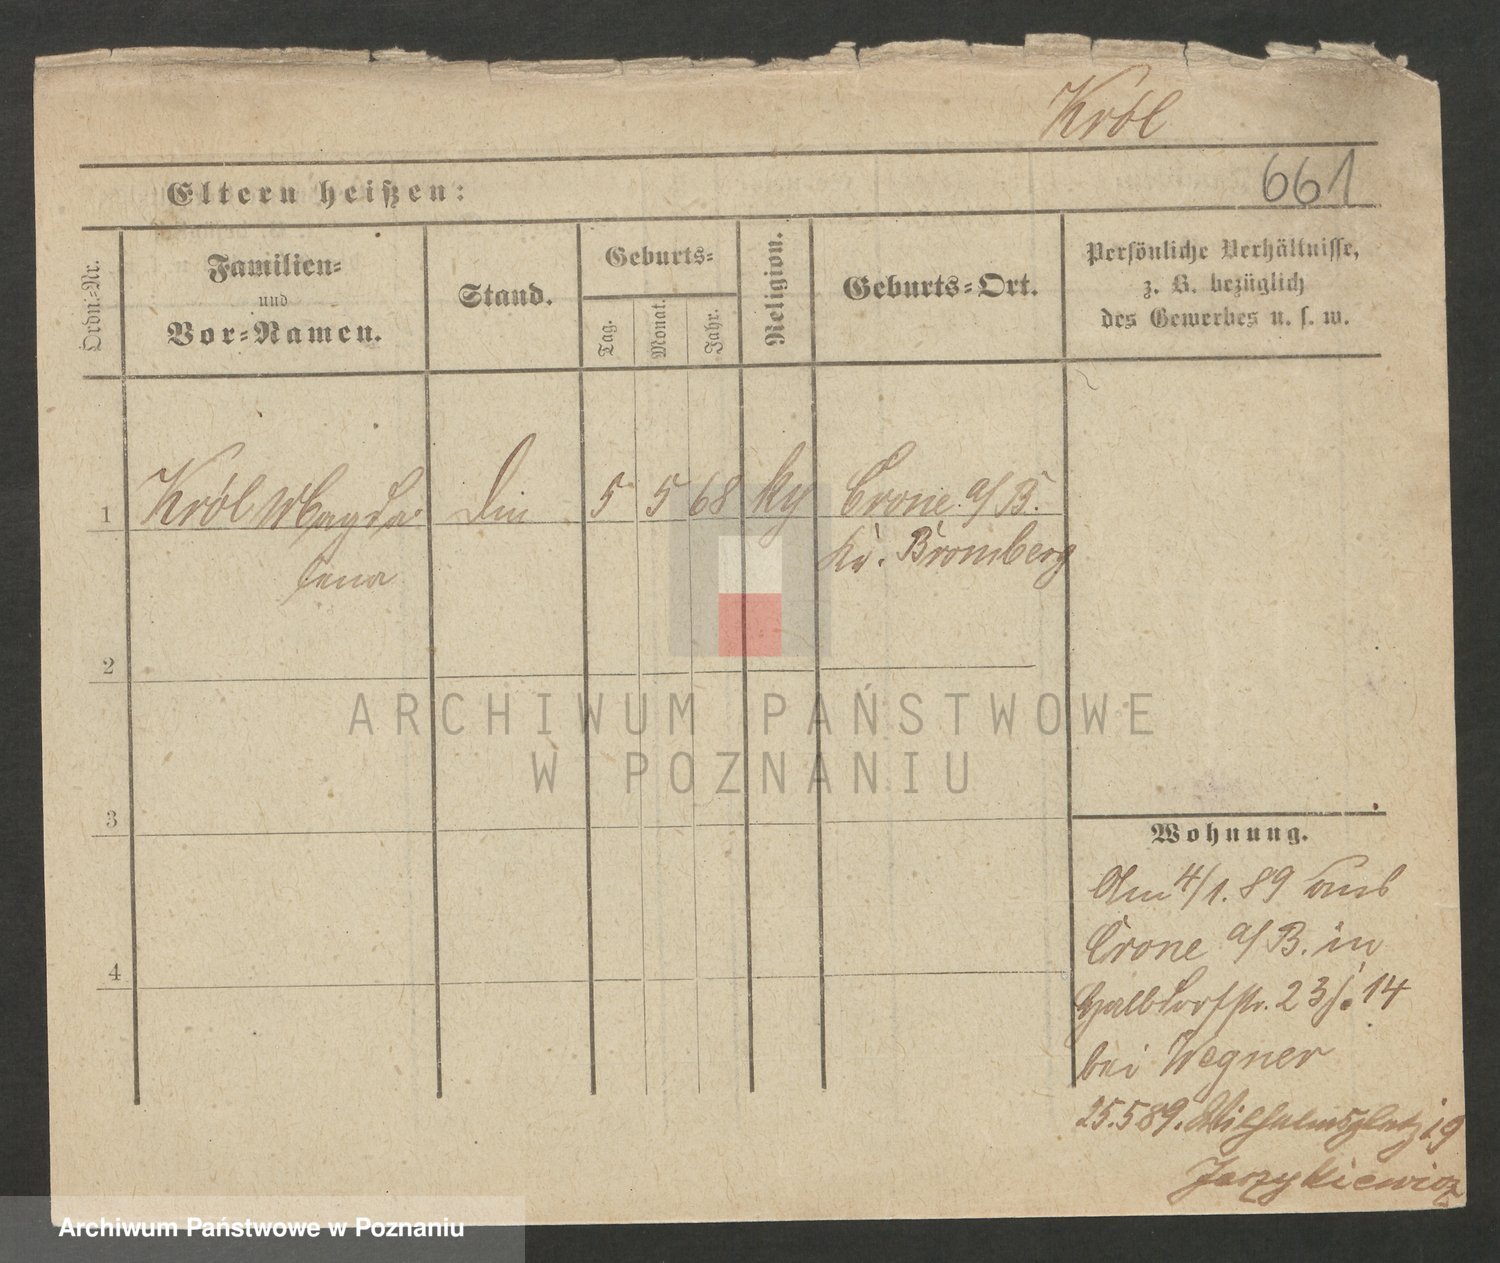 Król
661
Eltern heißen:
Ordn.-Nr.
Familien-
und
Vor-Namen.
Stand.
Geburts-
Tag.
Monat.
Jahr.
Religion.
Geburts-Ort.
Persönliche Verhältnisse,
z. B. bezüglich
des Gewerbes u. s. w.
1 Król Magda Din 5 5 68 Crone a/B.
lena Kr. Bromberg
2
3
4
Wohnung.
Am 4/1. 89 aus
Crone a/B. in
Halbdorfstr. 23 14
bei Wegner
25.5 89. Wilhelmsplatz 19
Jerzykiewicz
ARCHIWUM PAŃSTWOWE
W POZNANIU
Archiwum Państwowe w Poznaniu